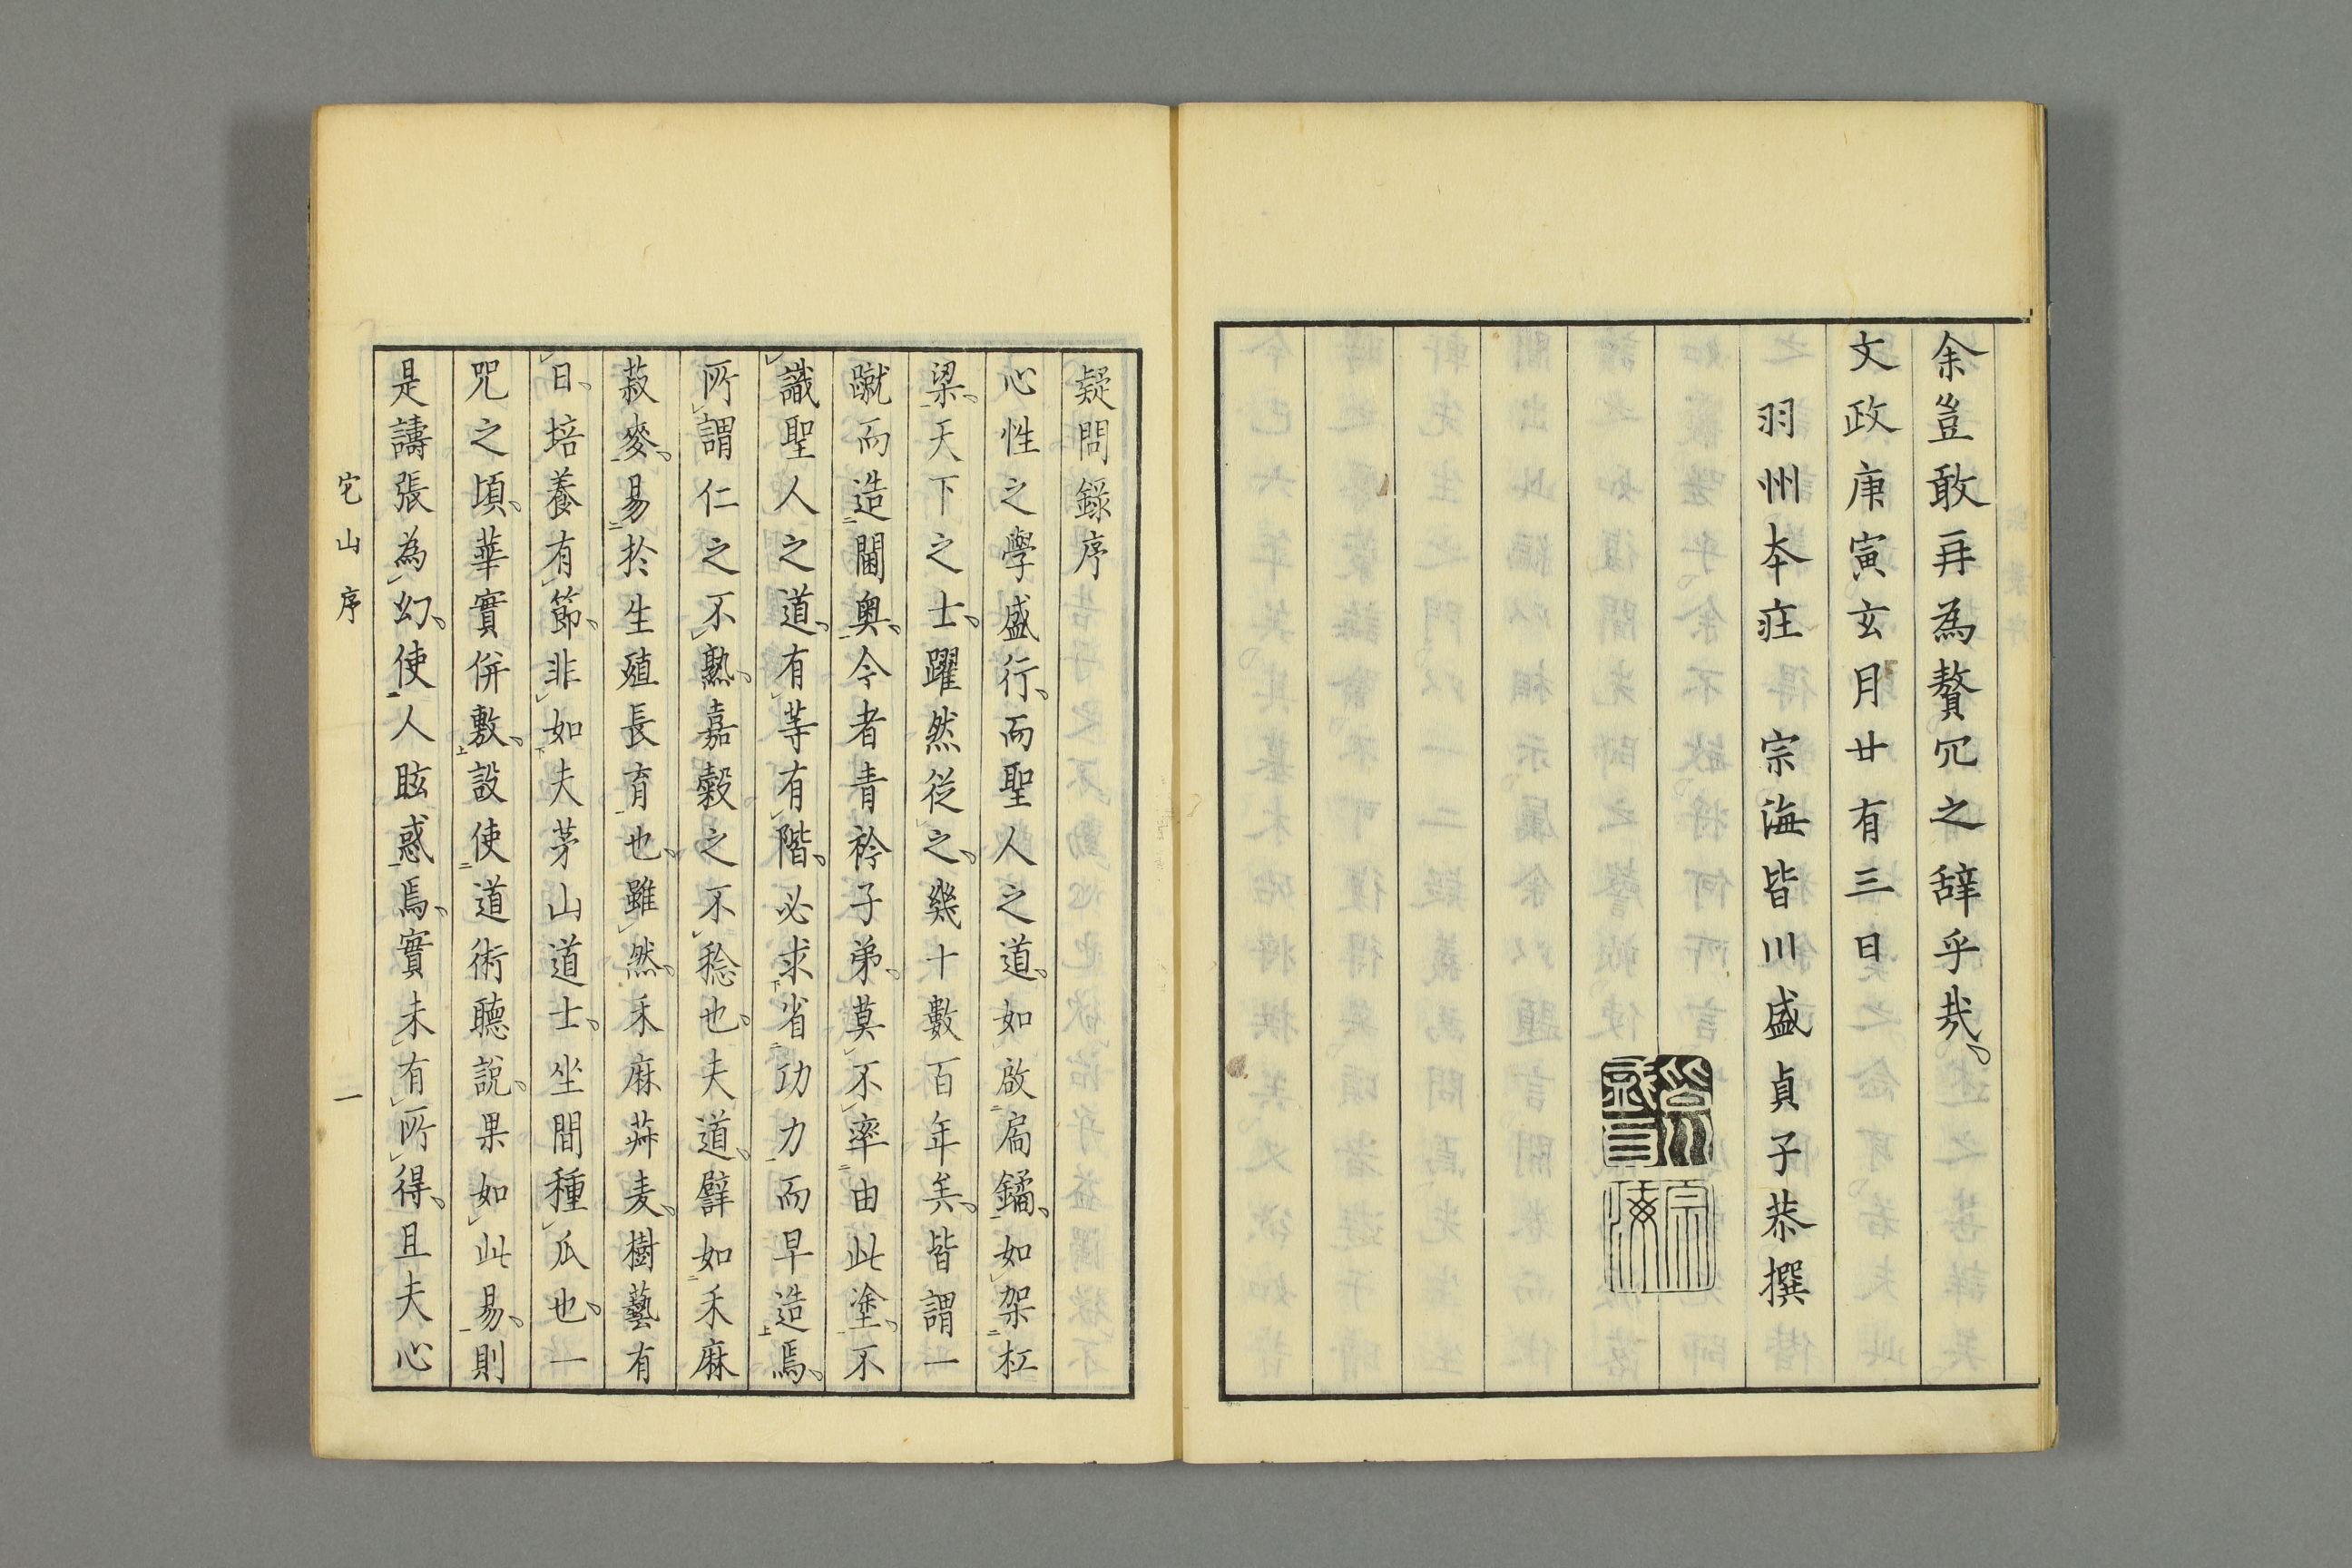 余豈敢再為贅冗之辞乎哉
文政庚寅玄月廿有三日
羽州本庄 宗海皆川盛貞子恭撰
疑問録序
心性之學盛行、而聖人之道、如啟扃鐍、如架杠
梁、天下之士、躍然從之、幾十數百年矣、皆謂一
蹴而造閫奥、今者青衿子弟、莫不率由此塗、不
識聖人之道、有等有階、必求省功力而早造焉、
所謂仁之不熟、嘉穀之不稔也、夫道、譬如禾麻
菽麥、易於生殖長育也、雖然、禾麻菽麦、樹藝有
日、培養有節、非如夫茅山道士、坐間種瓜也、一
咒之頃、華實併敷、設使道術聽說、果如此易、則
是譸張為幻、使人眩惑焉、實未有所得、且夫心
宅山序 一